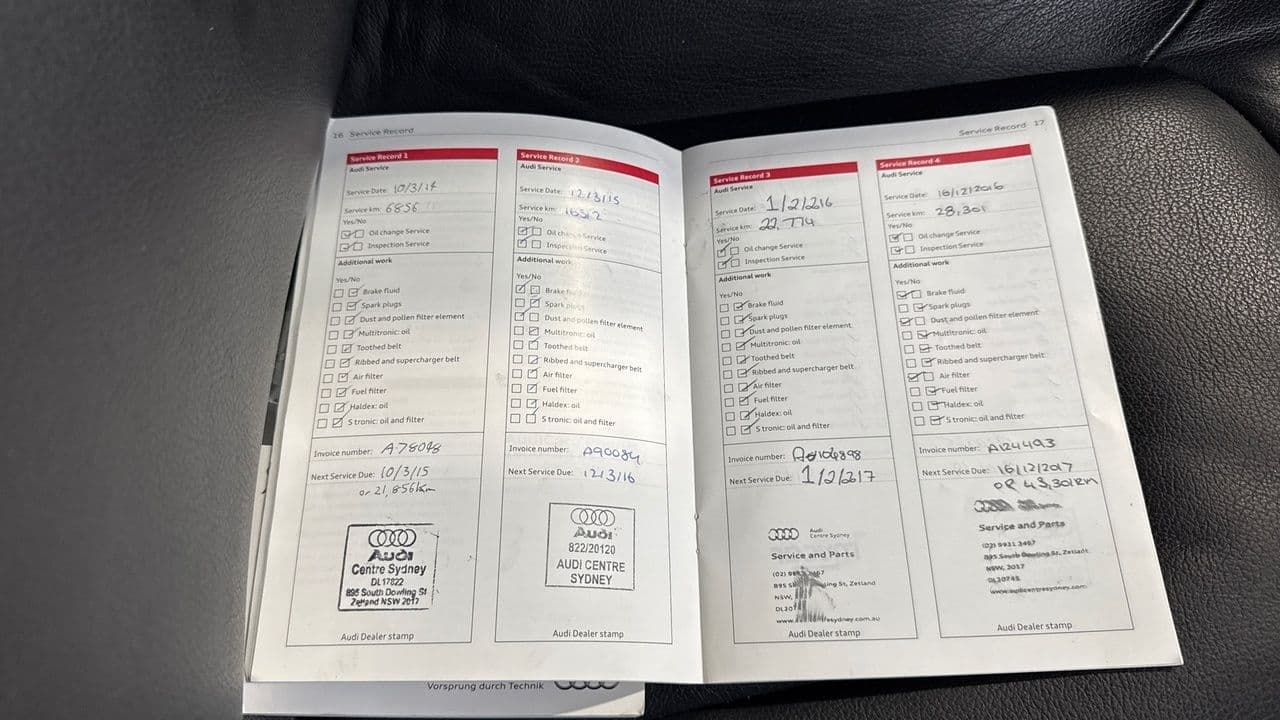 16 Service Record
Service Record 1
Audi Service
Service Date: 10/3/14
Service km: 6856
Yes/No
Oil change Service
Inspection Service
Additional work
Yes/No
Brake fluid
Spark plugs
Dust and pollen filter element
Multitronic: oil
Toothed belt
Ribbed and supercharger belt
Air filter
Fuel filter
Haldex: oil
S tronic: oil and filter
Invoice number: A78048
Next Service Due: 10/3/15
or 21,856km
Audi
Centre Sydney
DL17822
895 South Dowling St
Zetland NSW 2017
Audi Dealer stamp
Service Record 2
Audi Service
Service Date: 12/3/15
Service km:
Yes/No
Oil change Service
Inspection Service
Additional work
Yes/No
Brake fluid
Spark plugs
Dust and pollen filter element
Multitronic: oil
Toothed belt
Ribbed and supercharger belt
Air filter
Fuel filter
Haldex: oil
S tronic: oil and filter
Invoice number: A90084
Next Service Due: 12/3/16
Audi
822/20120
AUDI CENTRE
SYDNEY
Audi Dealer stamp
Service Record 17
Service Record 3
Audi Service
Service Date: 1/2/216
Service km: 22,774
Yes/No
Oil change Service
Inspection Service
Additional work
Yes/No
Brake fluid
Spark plugs
Dust and pollen filter element
Multitronic: oil
Toothed belt
Ribbed and supercharger belt
Air filter
Fuel filter
Haldex: oil
S tronic: oil and filter
Invoice number:
Next Service Due: 1/2/217
Audi
Centre Sydney
Service and Parts
(02)
895 St, Zetland
NSW,
Audi Dealer stamp
Service Record 4
Audi Service
Service Date: 16/12/2016
Service km: 28,301
Yes/No
Oil change Service
Inspection Service
Additional work
Yes/No
Brake fluid
Spark plugs
Dust and pollen filter element
Multitronic: oil
Toothed belt
Ribbed and supercharger belt
Air filter
Fuel filter
Haldex: oil
S tronic: oil and filter
Invoice number: A124493
Next Service Due: 16/12/2017
OR 43,301km
Service and Parts
(02) 9931 3467
895 South Dowling St, Zetland
NSW, 2017
DL20745
www.audicentresydney.com
Audi Dealer stamp
Vorsprung durch Technik